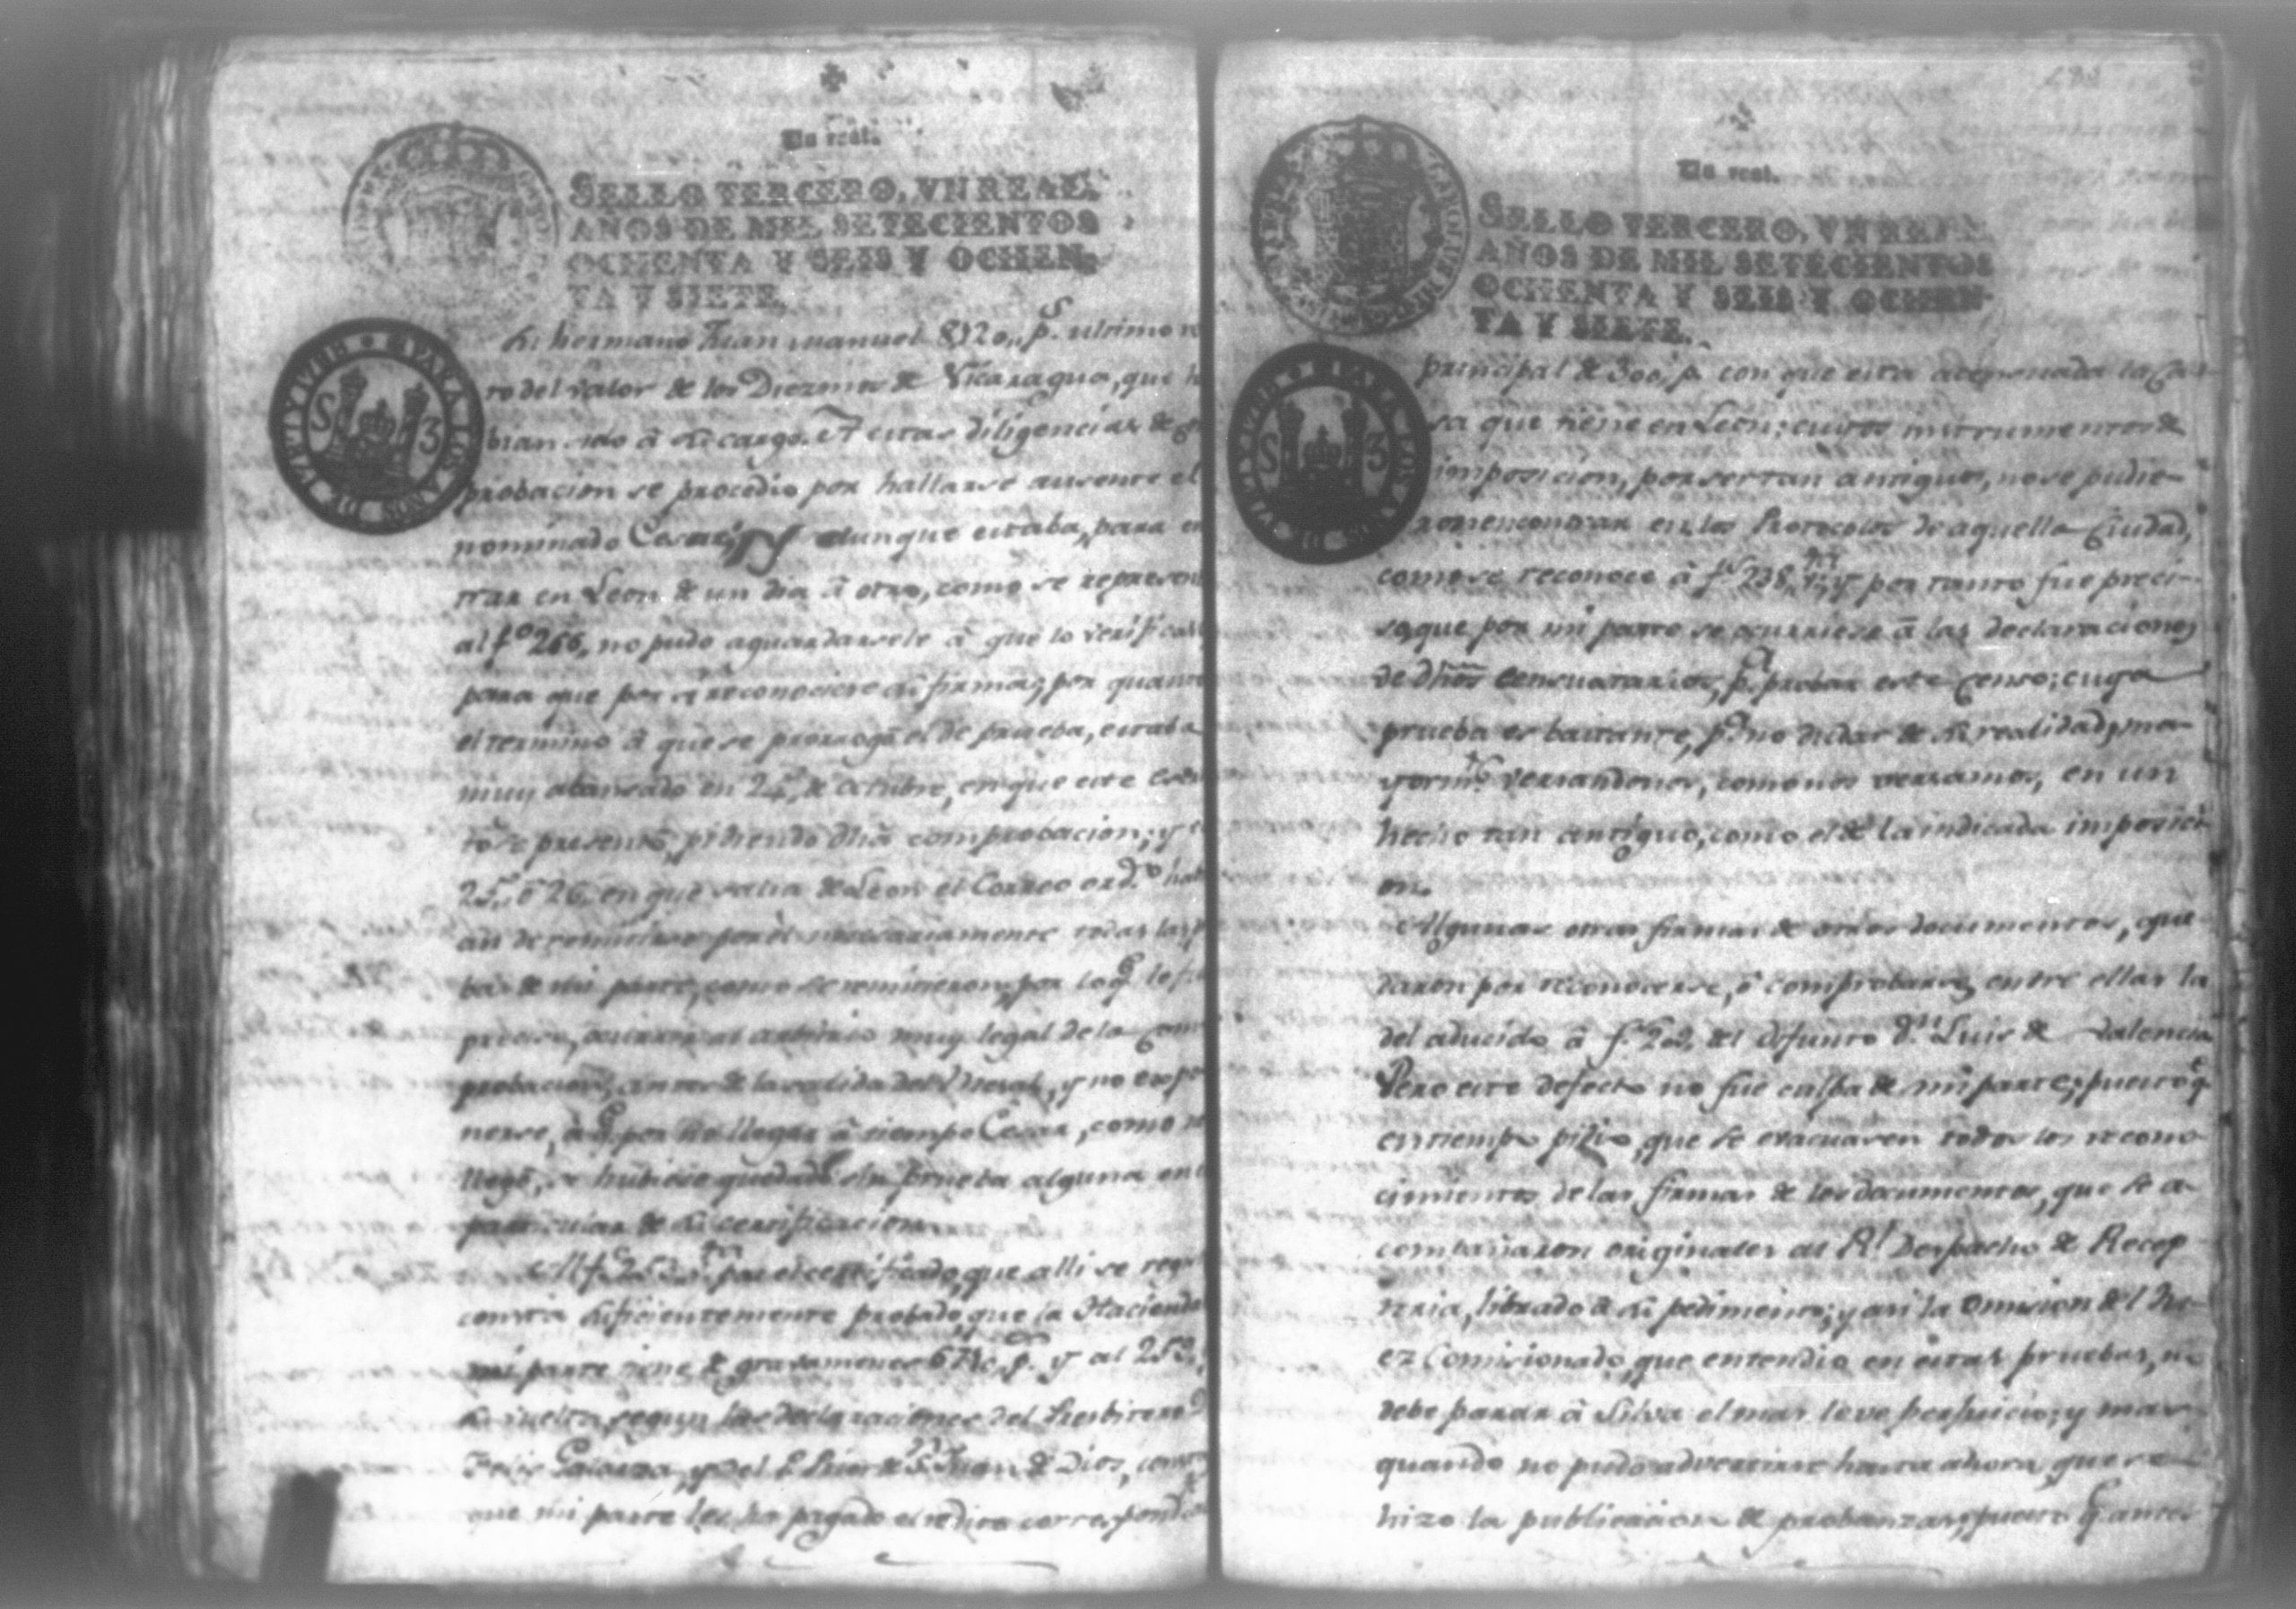 Un real.
SELLO TERCERO, VN REAL,
AÑOS DE MIL SETECIENTOS
OCHENTA Y SEIS Y OCHEN-
TA Y SIETE.
su hermano Juan manuel 8120 p.s ultimo
ro del valor de los Diezmos de Nicaragua, que h
bian sido â su cargo. A estas diligencias de
probacion se procedio por hallarse ausente el
nominado Cesar; y aunque estaba, para en
trar en Leon de un dia â otro, como se represen
al f.o 266, no pudo aguardarsele â que lo verificas
para que por si reconociese su firma; por quan
el termino â que se prorrogó el de prueba, estaba
muy abanzado en 24, de octubre, en que este
to se presentó, pidiendo dhâ comprobacion; y
25, ô 26, en que salia de Leon el Correo ord.o hab
an de remitirse por èl necesariamente todas las
bas de mi parte, como se remitieron; por lo q.e le
preciso, ocurrir al arbitrio muy legal de la Com
probacion, antes de la salida del , y no expo
nerse, â q.e por no llegar â tiempo Cesar, como
llegó, se hubiese quedado sin prueba alguna en
particular de su certificacion.
Al f. por el certificado, que alli se
consta suficientemente probado, que la Hacienda
mi parte tiene de gravamenes p.s y al 252,
su vuelta, segun las declaraciones del Presbitero
Felix , y del P. Prior de S.n Juan de Dios, consta
que mi parte les ha pagado el redito correspond
Un real.
SELLO TERCERO, VN REAL,
AÑOS DE MIL SETECIENTOS
OCHENTA Y SEIS Y OCHEN-
TA Y SIETE.
principal de 300 p.s con que esta acensuada la Ca
sa que tiene en Leon; cuyos instrumentos de
imposicion, por ser tan antiguos, no se pudie
ron encontrar en los Protocolos de aquella Ciudad,
como se reconoce â f.s 238, y por tanto fue preci-
so, que por mi parte se ocurriese â las declaraciones
de dhos Censuatarios, p.a probar este Censo; cuya
prueba es bastante, p.a no dudar de su realidad; ma-
yorm.te versandonos, como nos versamos, en un
hecho tan antiguo, como el de la indicada imposici-
on.
Algunas otras firmas de otros documentos, que
daron por reconocerse, ô comprobarse, entre ellas la
del aducido â f. 202, del difunto d.n Luis de Valencia
Pero este defecto no fue culpa de mi parte; puesto q.e
en tiempo pidio, que se evacuasen todos los recono
cimientos de las firmas de los documentos, que se a-
compañaron originales al R.l Despacho de Recep
toria, librado â su pedimento; y asi la omision del Ju-
ez Comisionado, que entendio en estas pruebas, no
debe parar â Silva el mas leve perjuicio; y mas
quando no pudo advertirse hasta ahora, que se
hizo la publicacion de probanzas; puesto q.e antes